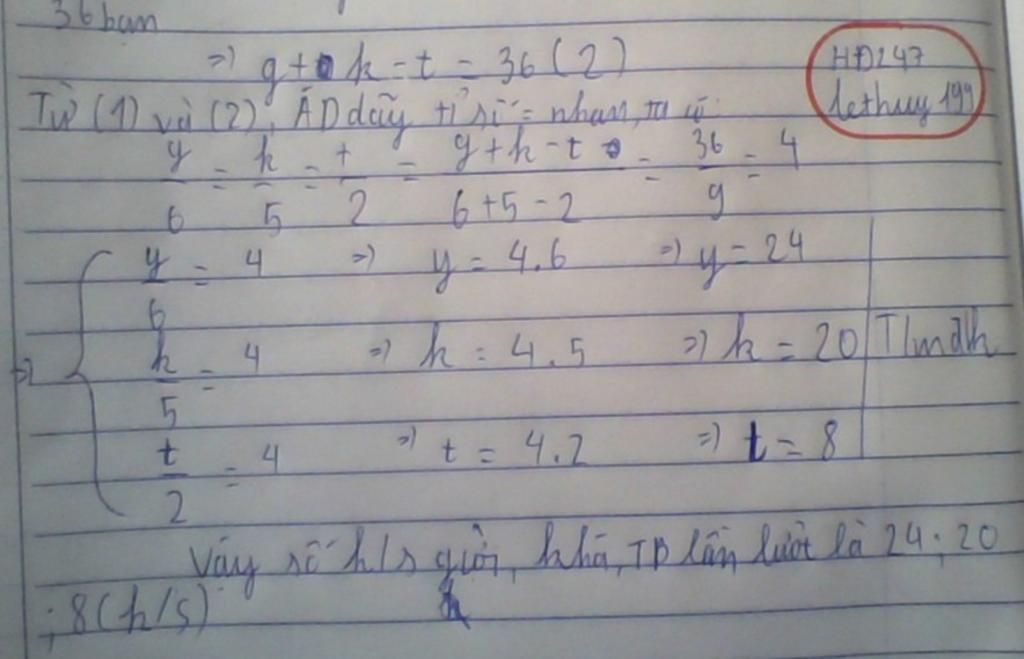 36 bạn
=> g + k - t = 36 (2)
HĐ247
lethuy199
Từ (1) và (2), ÁD dãy tỉ số = nhau, ta có:
g/6 = k/5 = t/2 = (g+k-t)/(6+5-2) = 36/9 = 4
=> { g/6 = 4 => g = 4.6 => g = 24
k/5 = 4 => k = 4.5 => k = 20 | T/mđk
t/2 = 4 => t = 4.2 => t = 8
Vậy số h/s giỏi, khá, TB lần lượt là 24; 20
; 8 (h/s)